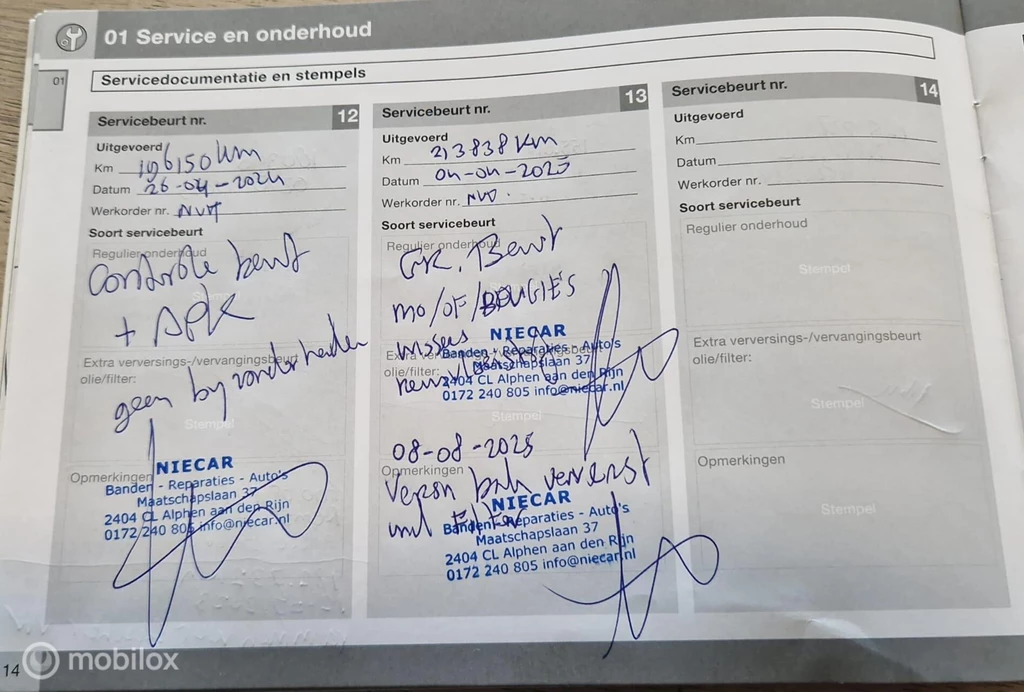 01 Service en onderhoud
01
Servicedocumentatie en stempels
Servicebeurt nr. 12
Uitgevoerd
Km 196150 km
Datum 26-04-2024
Werkorder nr. NVT
Soort servicebeurt
Regulier onderhoud
Controle beurt
+ APK
Extra verversings-/vervangingsbeurt
olie/filter:
geen byzonderheden
Stempel
Opmerkingen
NIECAR
Banden - Reparaties - Auto's
Maatschapslaan 37
2404 CL Alphen aan den Rijn
0172 240 805 info@niecar.nl
Servicebeurt nr. 13
Uitgevoerd
Km 213838 km
Datum 04-04-2025
Werkorder nr.
Soort servicebeurt
Regulier onderhoud
GR. Beurt
mo/OF/BOUGIE'S
wissers
olie/filter:
NIECAR
Banden - Reparaties - Auto's
Maatschapslaan 37
2404 CL Alphen aan den Rijn
0172 240 805 info@niecar.nl
Stempel
08-08-2025
Opmerkingen
bak ververst
filter
NIECAR
Banden - Reparaties - Auto's
Maatschapslaan 37
2404 CL Alphen aan den Rijn
0172 240 805 info@niecar.nl
Servicebeurt nr. 14
Uitgevoerd
Km
Datum
Werkorder nr.
Soort servicebeurt
Regulier onderhoud
Stempel
Extra verversings-/vervangingsbeurt
olie/filter:
Stempel
Opmerkingen
Stempel
14
mobilox